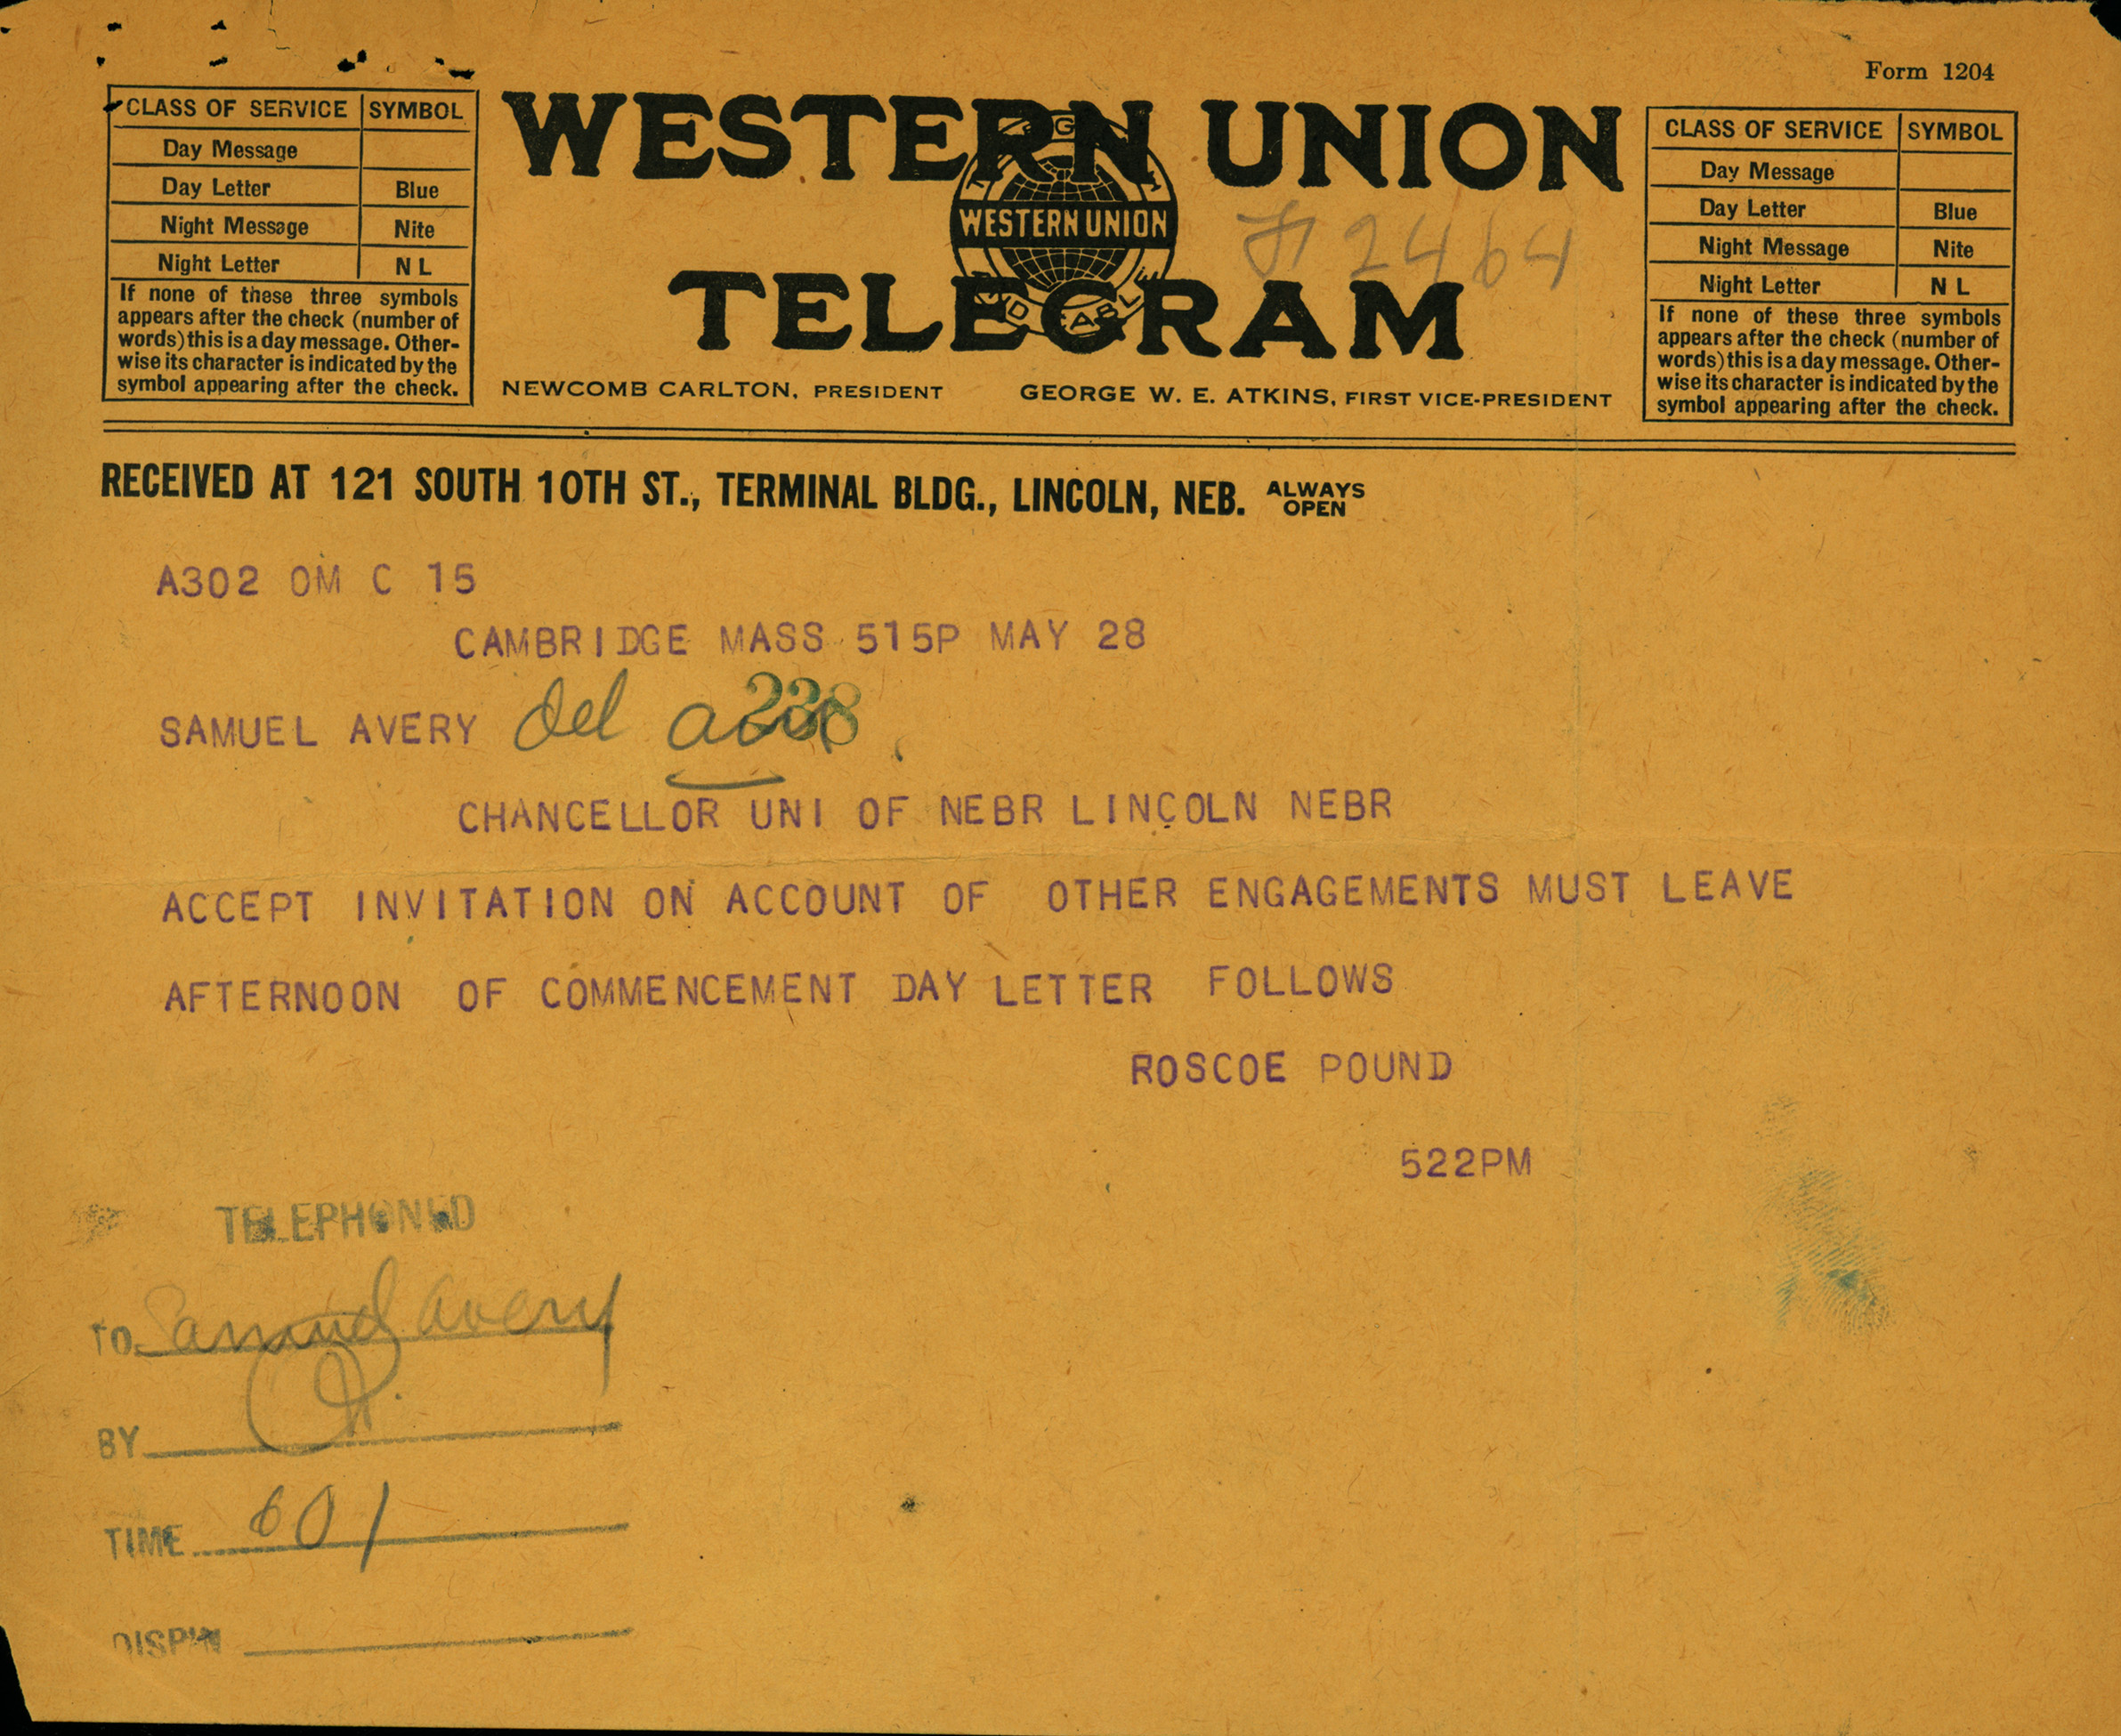 Form 1204
CLASS OF SERVICE SYMBOL
Day Message
Day Letter Blue
Night Message Nite
Night Letter N L
If none of these three symbols
appears after the check (number of
words) this is a day message. Other-
wise its character is indicated by the
symbol appearing after the check.
WESTERN UNION
WESTERN UNION
TELEGRAM
2464
NEWCOMB CARLTON, PRESIDENT GEORGE W. E. ATKINS, FIRST VICE-PRESIDENT
CLASS OF SERVICE SYMBOL
Day Message
Day Letter Blue
Night Message Nite
Night Letter N L
If none of these three symbols
appears after the check (number of
words) this is a day message. Other-
wise its character is indicated by the
symbol appearing after the check.
RECEIVED AT 121 SOUTH 10TH ST., TERMINAL BLDG., LINCOLN, NEB. ALWAYS OPEN
A302 OM C 15
CAMBRIDGE MASS 515P MAY 28
SAMUEL AVERY del 238
CHANCELLOR UNI OF NEBR LINCOLN NEBR
ACCEPT INVITATION ON ACCOUNT OF OTHER ENGAGEMENTS MUST LEAVE
AFTERNOON OF COMMENCEMENT DAY LETTER FOLLOWS
ROSCOE POUND
522PM
TELEPHONED
TO Samuel Avery
BY
TIME 601